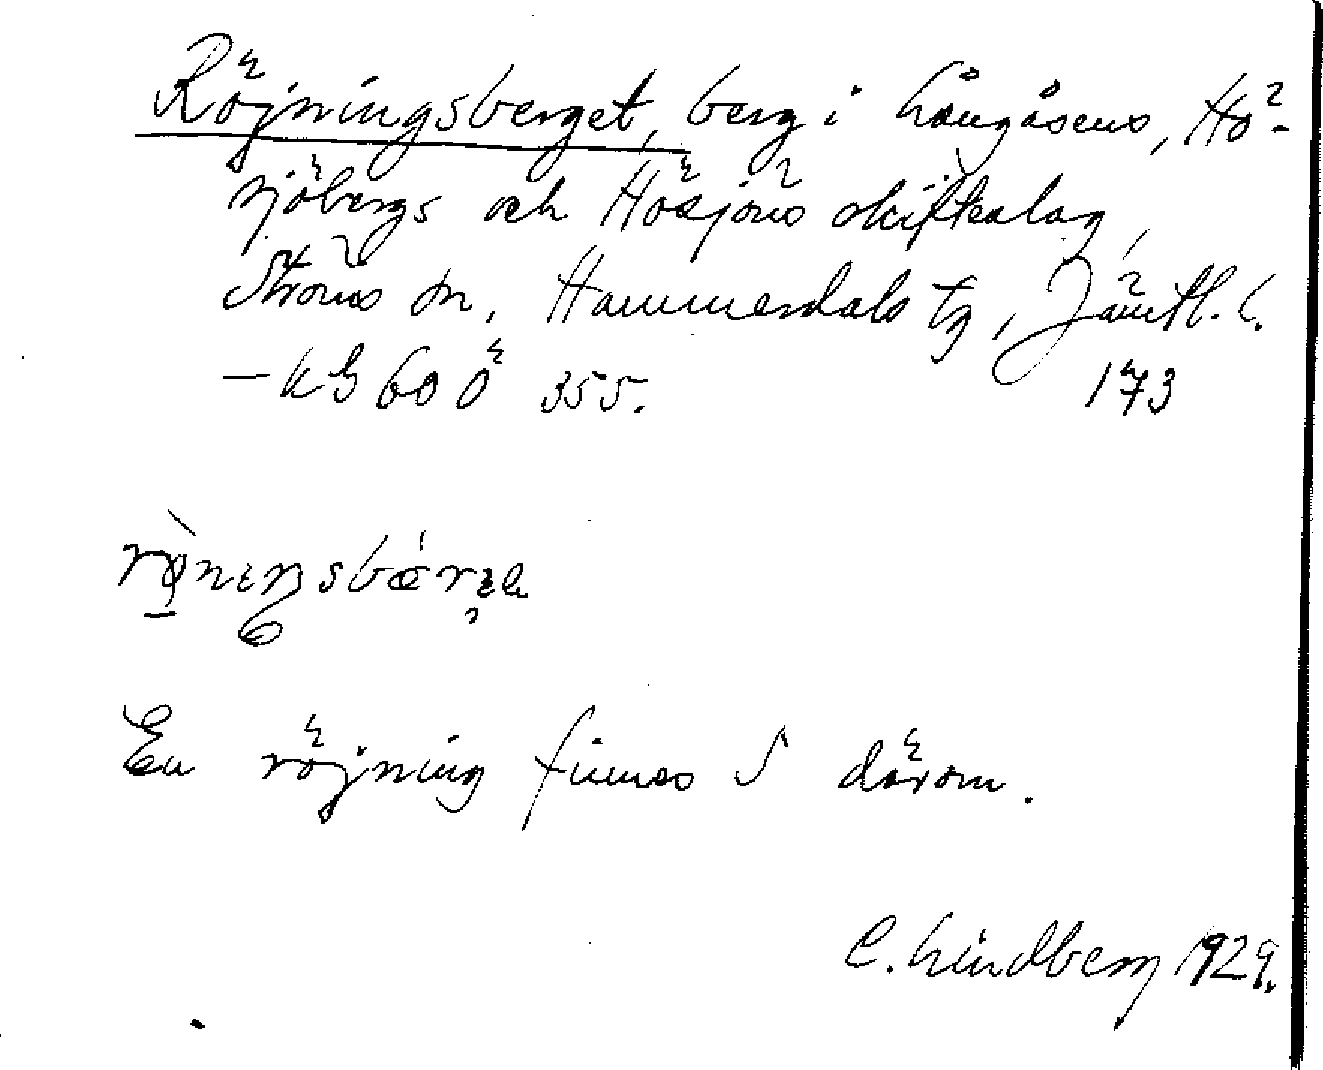 Röjningsberget, berg i Långåsens, Hö-
sjöbergs och Hösjöns skifteslag,
Ströms sn, Hammerdals tg, Jämtl. l.
– kG 60 Ö 355. 173
En röjning finnes S därom.
C. Lindberg 1929.